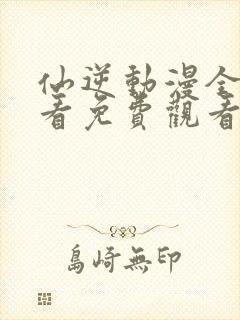 仙逆動漫全
看免費觀看
島崎無印